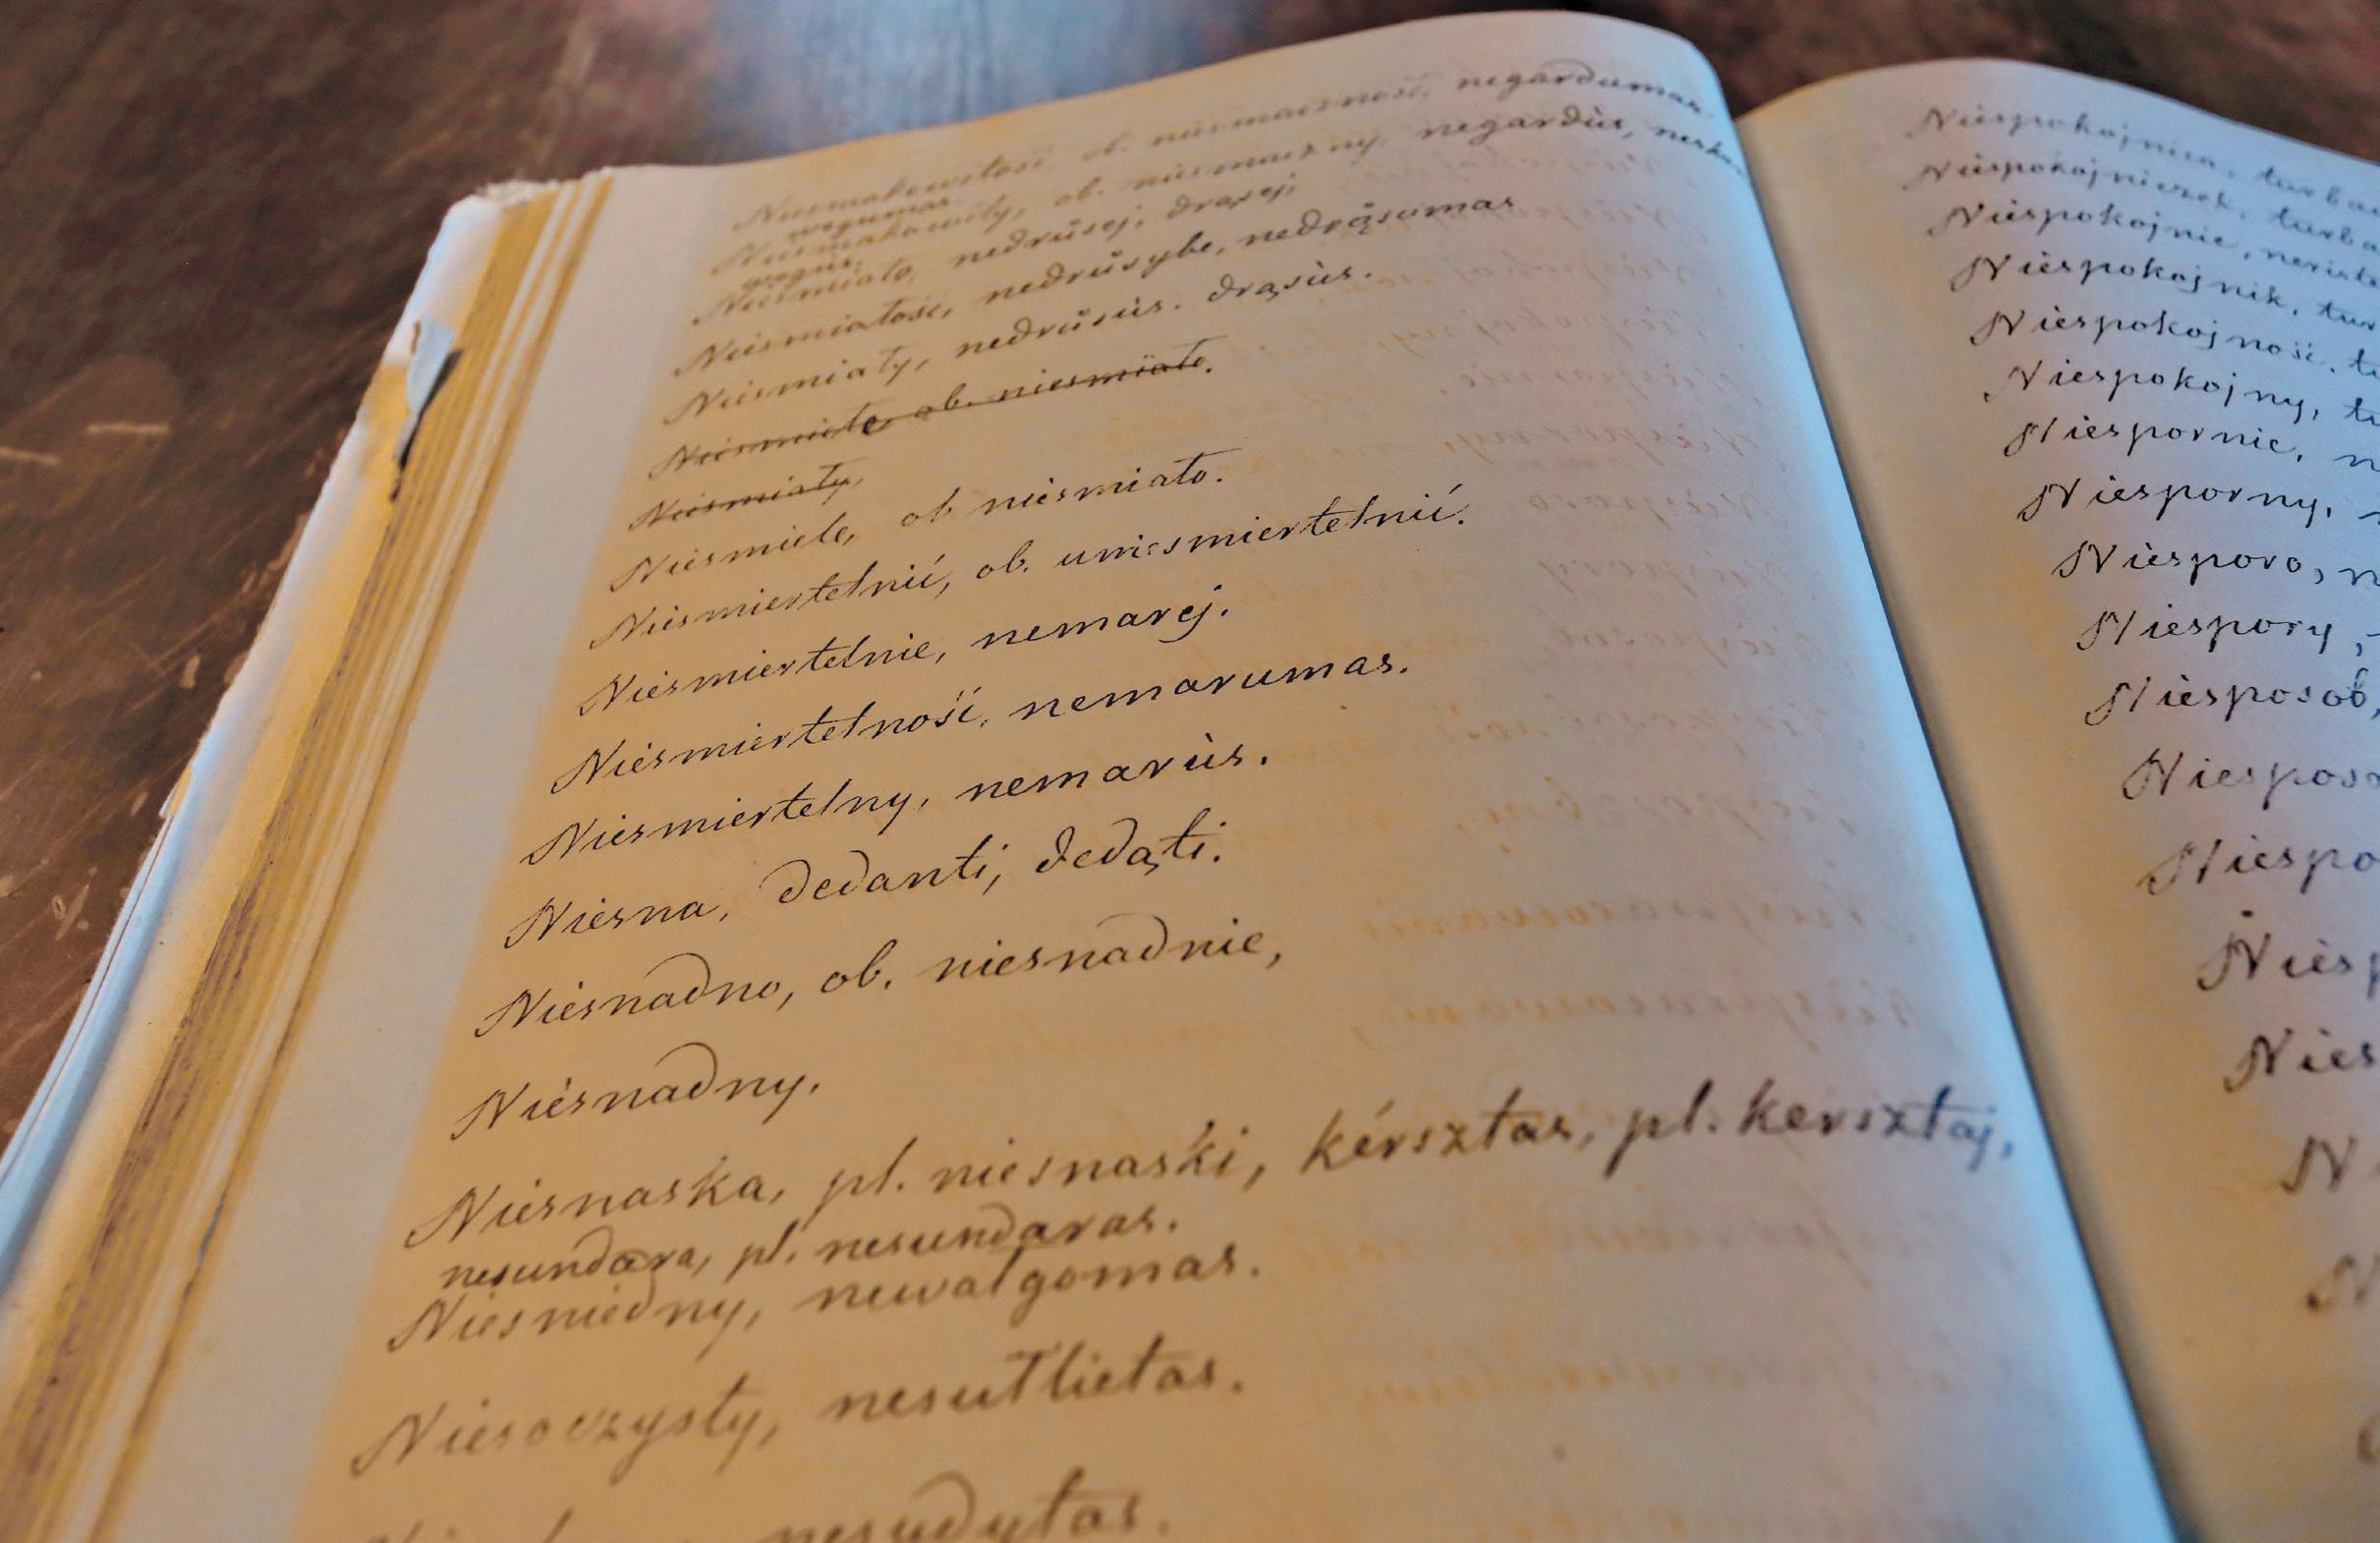 Niesmakowitość, ob. niesmaczność, negardumas.
wogumas.
Niesmakowity, ob. niesmaczny, negardùs,
wogùs.
Niesmiało, nedrūsej, drąsej.
Niesmiałość, nedrūsybe, nedrąsumas
Niesmiały, nedrūsùs. drąsùs.
Niesmiele, ob. niesmiało.
Niesmiały,
Niesmiele, ob niesmiało.
Niesmiertelnić, ob. uniesmiertelnić.
Niesmiertelnie, nemarej.
Niesmiertelność, nemarumas.
Niesmiertelny, nemarùs.
Niesna, dedanti, dedąti.
Niesnadno, ob. niesnadnie,
Niesnadny.
Niesnaska, pl. niesnaski, kérsztas, pl. kersztaj,
nesundara, pl. nesundaras.
Niesniedny, newalgomas.
Niesoczysty, nesutlietas.
nesudytas.
Niespokojnica,
Niespokojniczek,
Niespokojnie,
Niespokojnik,
Niespokojność,
Niespokojny,
Niespornie,
Niesporny,
Niesporo,
Niespory,
Niesposób,